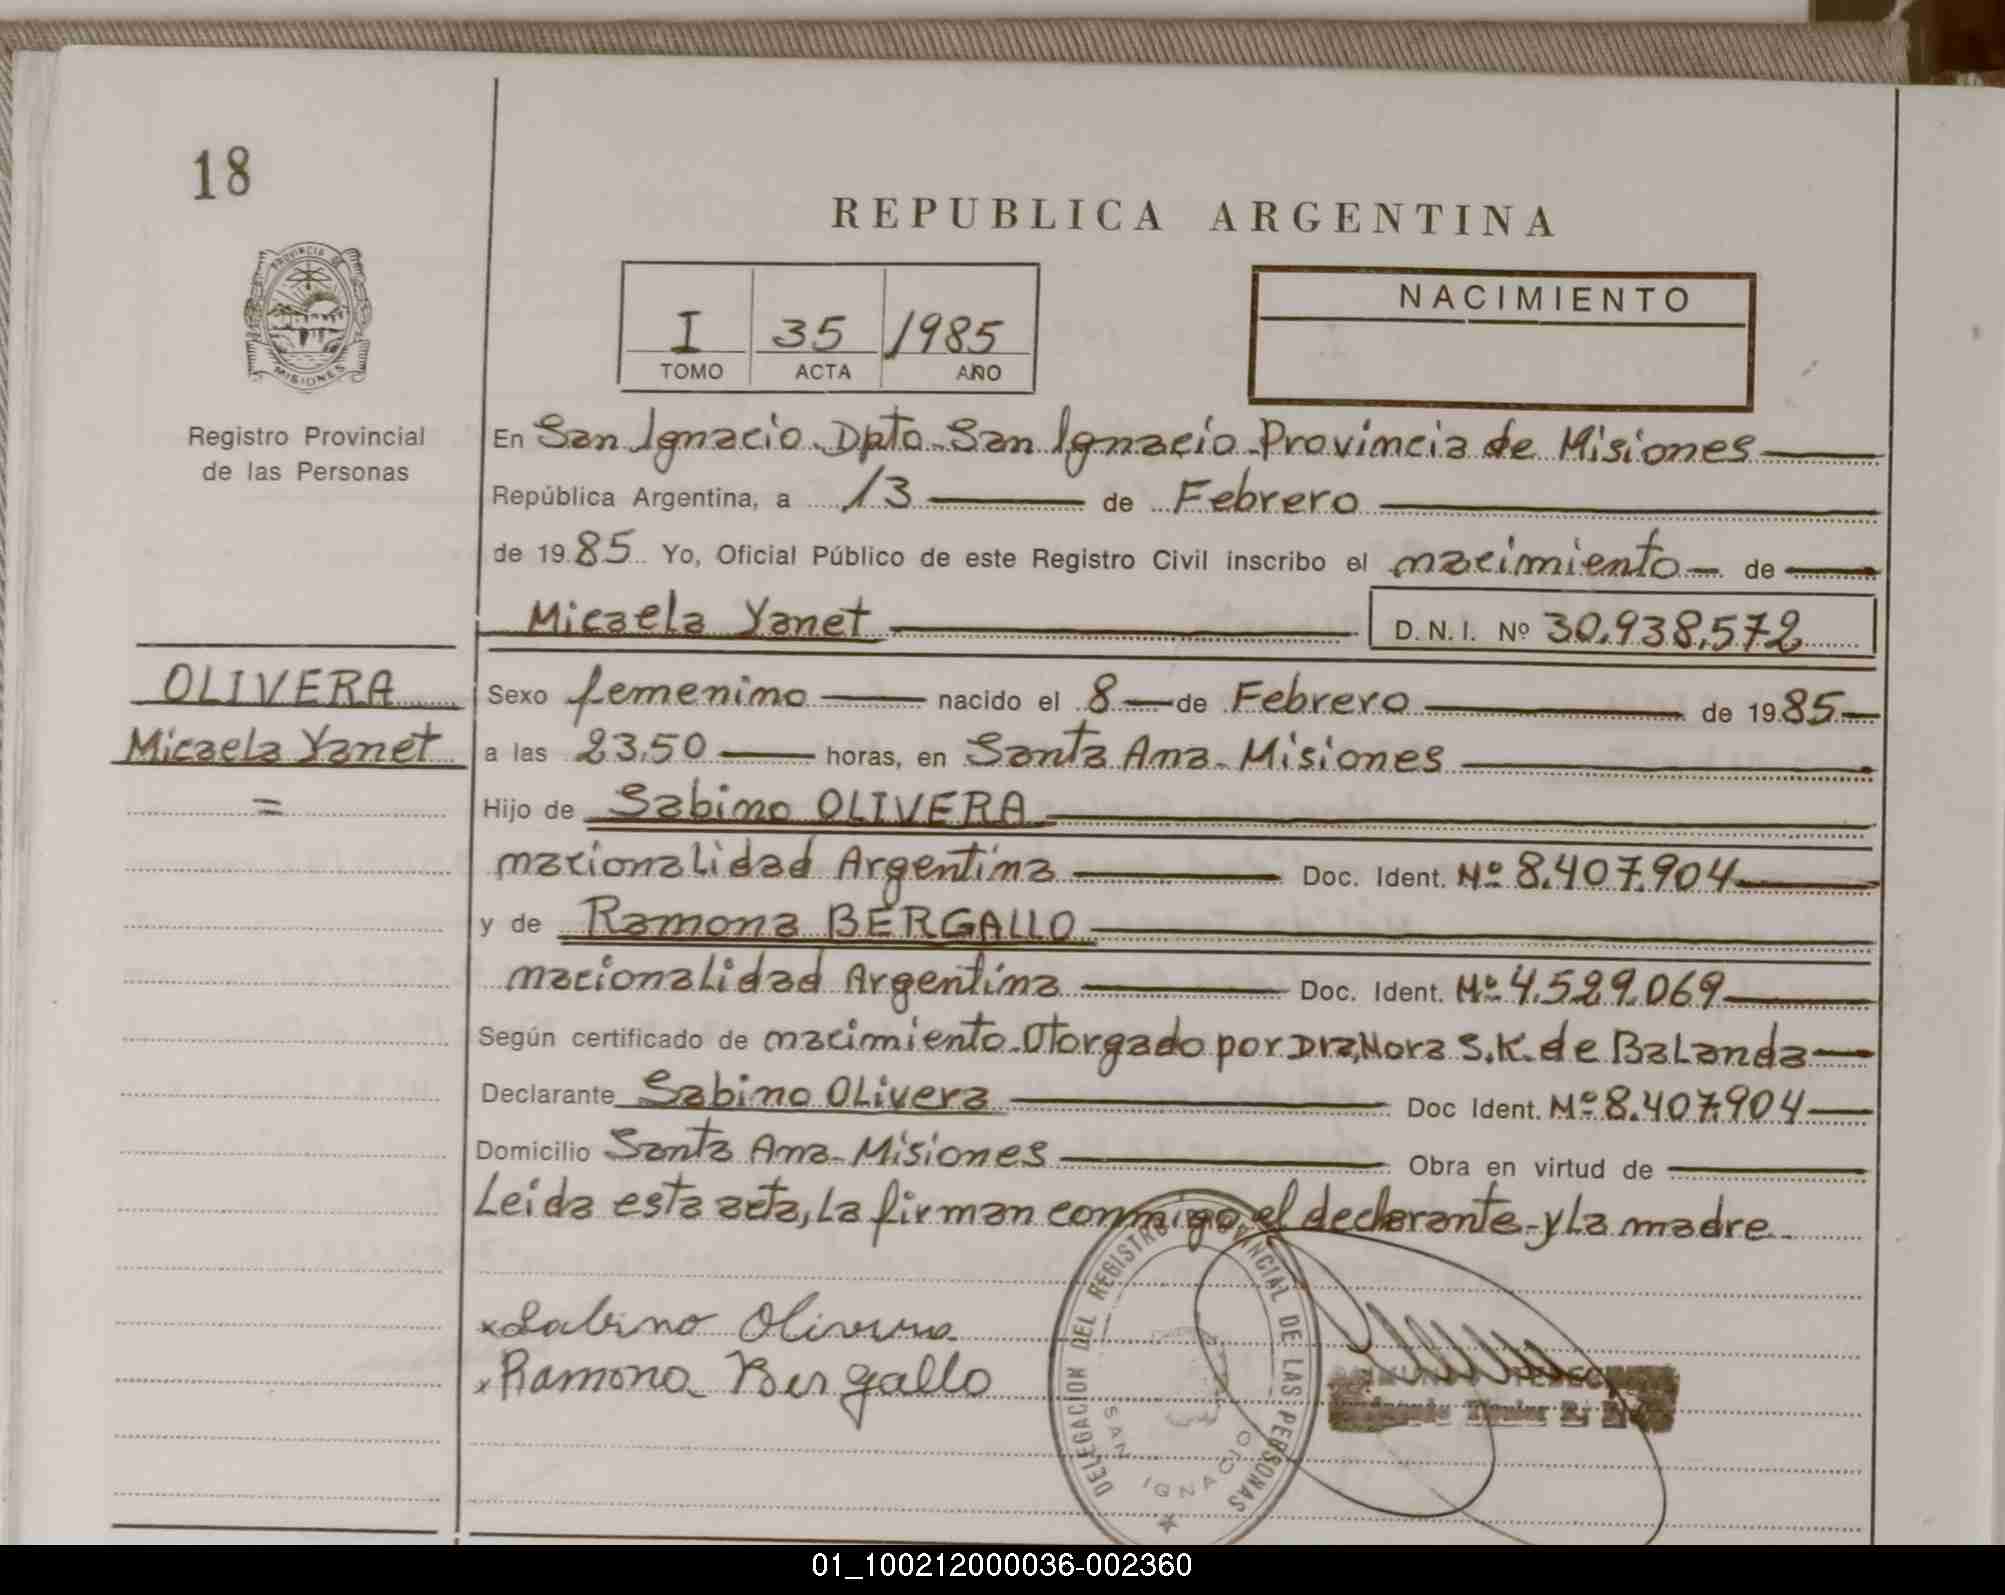 18
REPUBLICA ARGENTINA
PROVINCIA DE
MISIONES
Registro Provincial
de las Personas
I 35 1985
TOMO ACTA AÑO
NACIMIENTO
En San Ignacio. Dpto. San Ignacio. Provincia de Misiones
República Argentina, a 13 de Febrero
de 1985 Yo, Oficial Público de este Registro Civil inscribo el nacimiento de
Micaela Yanet D.N.I. Nº 30.938.572
OLIVERA
Micaela Yanet
=
Sexo femenino nacido el 8 de Febrero de 1985
a las 23,50 horas, en Santa Ana - Misiones
Hijo de Sabino OLIVERA
nacionalidad Argentina Doc. Ident. Nº 8.407.904
y de Ramona BERGALLO
nacionalidad Argentina Doc. Ident. Nº 4.529.069
Según certificado de nacimiento. Otorgado por Dra, Nora S.K. de Balanda
Declarante Sabino Olivera Doc Ident. Nº 8.407.904
Domicilio Santa Ana - Misiones Obra en virtud de
Leída esta acta, la firman conmigo, el declarante y la madre
x Sabino Olivera
x Ramona Bergallo
DELEGACION DEL REGISTRO PROVINCIAL DE LAS PERSONAS
SAN IGNACIO
01_100212000036-002360